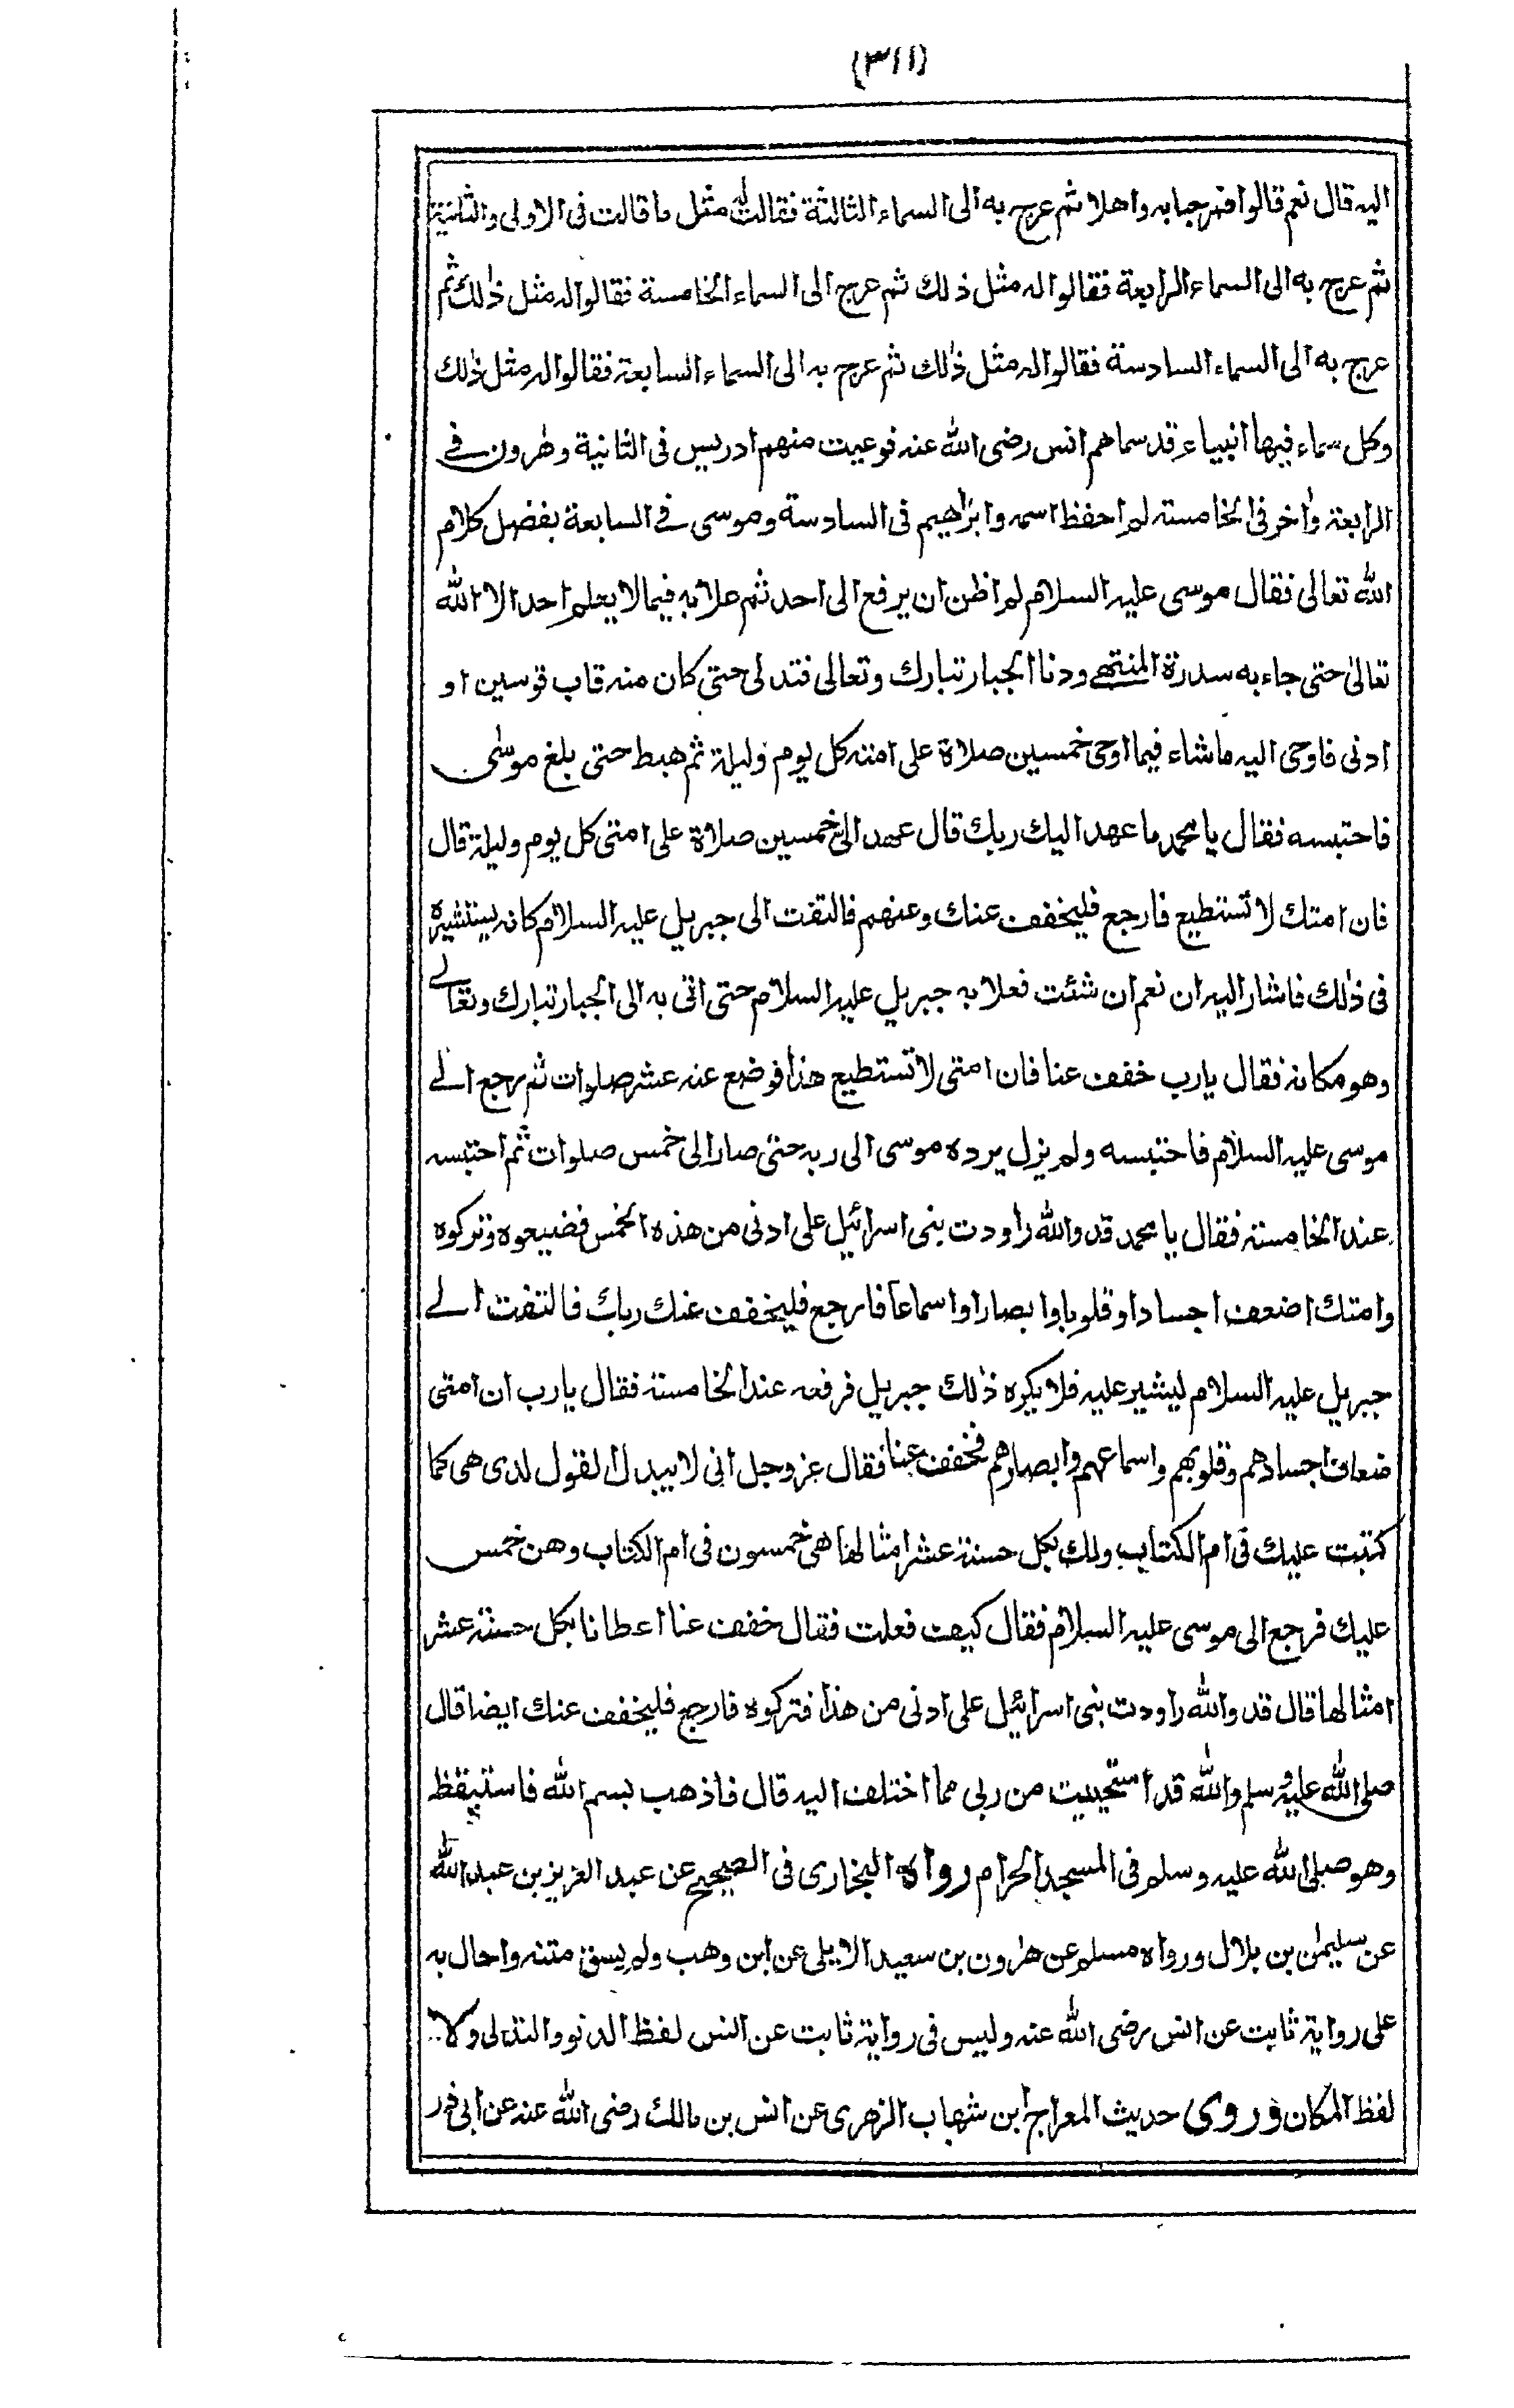 (٣١١)
اليه قال نعم قالوا فمرحبا به واهلا ثم عرج به الى السماء الثالثة فقالت له مثل ما قالت فى الاولى والثانية
ثم عرج به الى السماء الرابعة فقالوا له مثل ذلك ثم عرج الى السماء الخامسة فقالوا له مثل ذلك ثم
عرج به الى السماء السادسة فقالوا له مثل ذلك ثم عرج به الى السماء السابعة فقالوا له مثل ذلك
وكل سماء فيها انبياء قد سماهم انس رضى الله عنه فوعيت منهم ادريس فى الثانية وهرون فى
الرابعة واخر فى الخامسة لم احفظ اسمه وابراهيم فى السادسة وموسى فى السابعة بفضل كلام
الله تعالى فقال موسى عليه السلام لم اظن ان يرفع الى احد ثم علا به فيما لا يعلم احد الا الله
تعالى حتى جاء به سدرة المنتهى ودنا الجبار تبارك وتعالى فتدلى حتى كان منه قاب قوسين او
ادنى فاوحى اليه ما شاء فيما اوحى خمسين صلاة على امته كل يوم وليلة ثم هبط حتى بلغ موسى
فاحتبسه فقال يا محمد ما عهد اليك ربك قال عهد الى خمسين صلاة على امتى كل يوم وليلة قال
فان امتك لا تستطيع فارجع فليخفف عنك وعنهم فالتفت الى جبريل عليه السلام كانه يستشيره
فى ذلك فاشار اليه ان نعم ان شئت فعلا به جبريل عليه السلام حتى اتى به الى الجبار تبارك وتعالى
وهو مكانه فقال يا رب خفف عنا فان امتى لا تستطيع هذا فوضع عنه عشر صلوات ثم رجع الى
موسى عليه السلام فاحتبسه ولم يزل يرده موسى الى ربه حتى صار الى خمس صلوات ثم احتبسه
عند الخامسة فقال يا محمد قد والله راودت بنى اسرائيل على ادنى من هذه الخمس فضيعوه وتركوه
وامتك اضعف اجسادا وقلوبا وابصارا واسماعا فارجع فليخفف عنك ربك فالتفت الى
جبريل عليه السلام ليشير عليه فلا يكره ذلك جبريل فرفعه عند الخامسة فقال يا رب ان امتى
ضعاف اجسادهم وقلوبهم واسماعهم وابصارهم فخفف عنا فقال عز وجل انى لا يبدل القول لدى هى كما
كتبت عليك فى ام الكتاب ولك بكل حسنة عشر امثالها هى خمسون فى ام الكتاب وهن خمس
عليك فرجع الى موسى عليه السلام فقال كيف فعلت فقال خفف عنا اعطانا بكل حسنة عشر
امثالها قال قد والله راودت بنى اسرائيل على ادنى من هذا فتركوه فارجع فليخفف عنك ايضا قال
صلى الله عليه وسلم والله قد استحييت من ربى مما اختلف اليه قال فاذهب بسم الله فاستيقظ
وهو صلى الله عليه وسلم فى المسجد الحرام رواه البخارى فى الصحيح عن عبد العزيز بن عبد الله
عن سليمن بن بلال ورواه مسلم عن هرون بن سعيد الايلى عن ابن وهب ولم يسق متنه واحال به
على رواية ثابت عن انس رضى الله عنه وليس فى رواية ثابت عن انس لفظ الدنو والتدلى ولا
لفظ المكان وروى حديث المعراج ابن شهاب الزهرى عن انس بن مالك رضى الله عنه عن ابى ذر